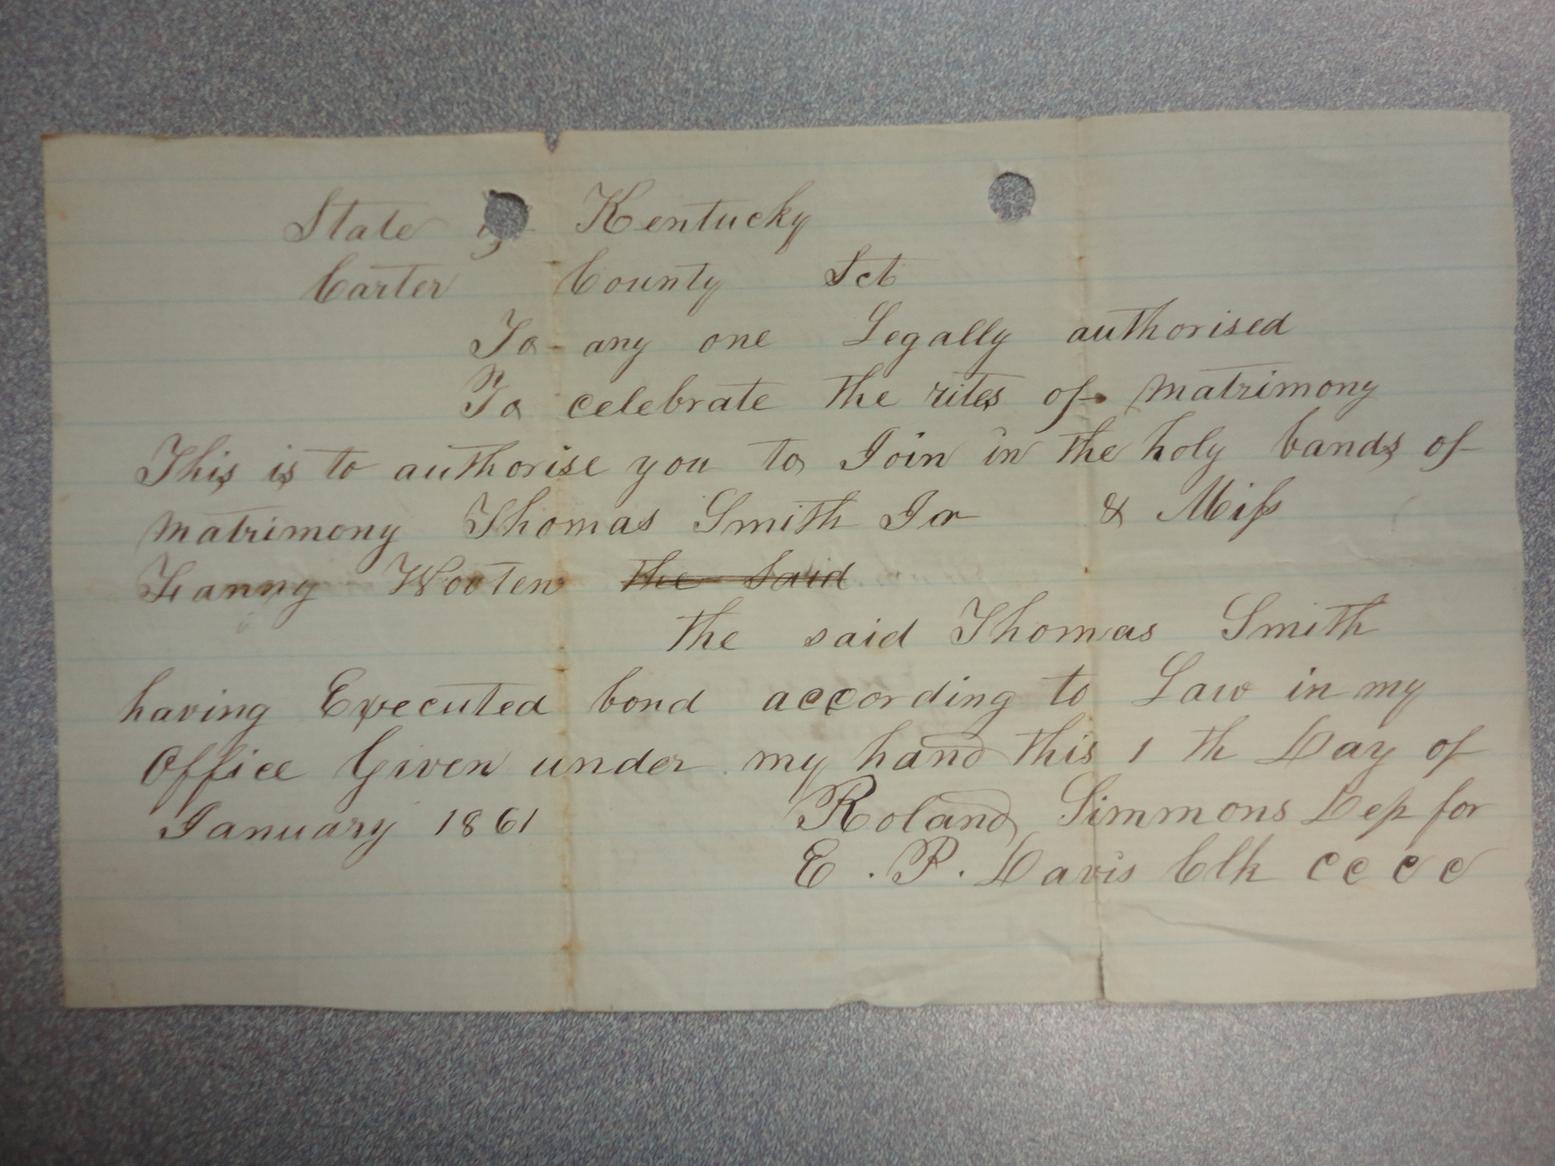 State of Kentucky
Carter County Sct
To any one Legally authorised
To celebrate the rites of matrimony
This is to authorise you to Join in the holy bands of
matrimony Thomas Smith Jr & Miss
Fanny Wooten the Said
the said Thomas Smith
having Executed bond according to Law in my
Office Given under my hand this 1 th Day of
January 1861 Roland Simmons Dep for
E. P. Davis Clk C C C C